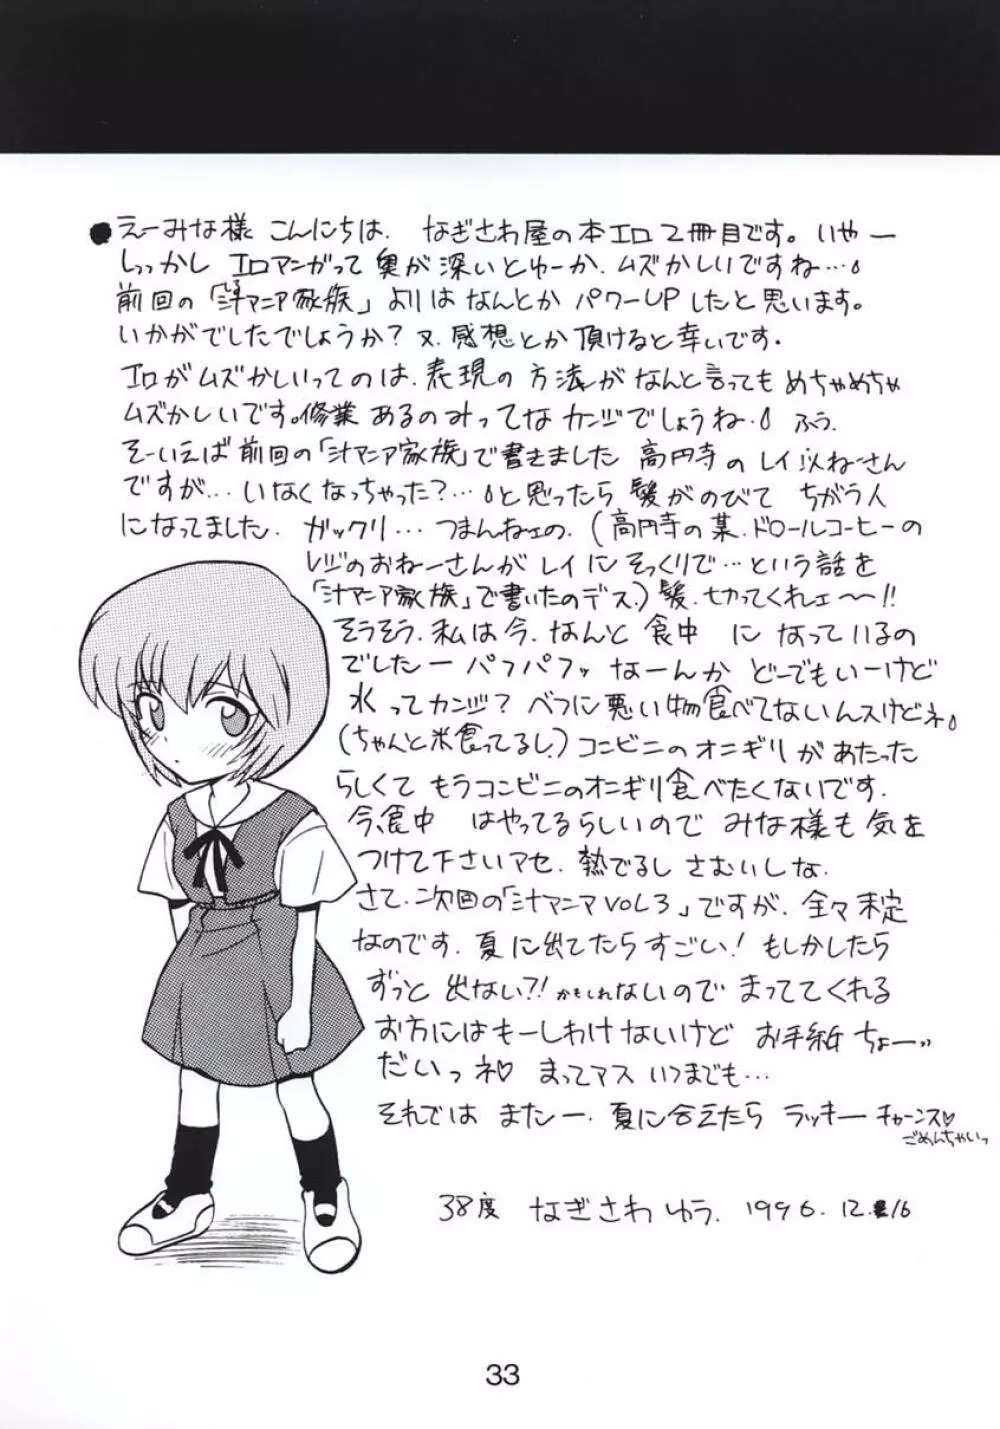 ●えーみな様 こんにちは、 なぎさわ屋の本エロ2冊目です。いやー
しっっかし エロマンガって 奥が 深いとゆーか、ムズかしいですね…
前回の「汁マニア家族」よりは なんとか パワーUPしたと思います。
いかがでしたでしょうか? 又、感想とか頂けると幸いです。
エロがムズかしいってのは、表現の方法が なんと言っても めちゃめちゃ
ムズかしいです。修業 あるのみってな カンジでしょうね、 ふう。
そーいえば 前回の「汁マニア家族」で書きました 高円寺の レイ似ねーさん
ですが… いなくなっちゃった?… と思ったら 髪がのびて ちがう人
になってました。 ガックリ… つまんねェの。(高円寺の某、ドロールコーヒーの
レジのおねーさんが レイにそっくりで…という話を
「汁マニア家族」で書いたのデス。) 髪、切ってくれェ〜〜!!
そうそう、私は今、なんと 食中 に なっているの
でしたー パフパフッ なーんか どーでもいーけど
水ってカンジ? べつに 悪い物食べてないんスけどネ。
(ちゃんと米食ってるし) コンビニの オニギリが あたった
らしくて もうコンビニのオニギリ食べたくないです。
今、食中 はやってるらしいので みな様も 気を
つけて下さいマセ。熱でるし さむいしな。
さて、次回の「汁マニア VOL3」ですが、全々未定
なのです。夏に出てたら すごい! もしかしたら
ずっと 出ない?! かもしれないので まっててくれる
お方には もーしわけないけど お手紙 ちょーッ
だいっネ♡ まってマス いつまでも…
それでは またー。夏に会えたら ラッキー チャーンス♡
ごめんちゃいっ
38度 なぎさわゆう。1996.12.16
33